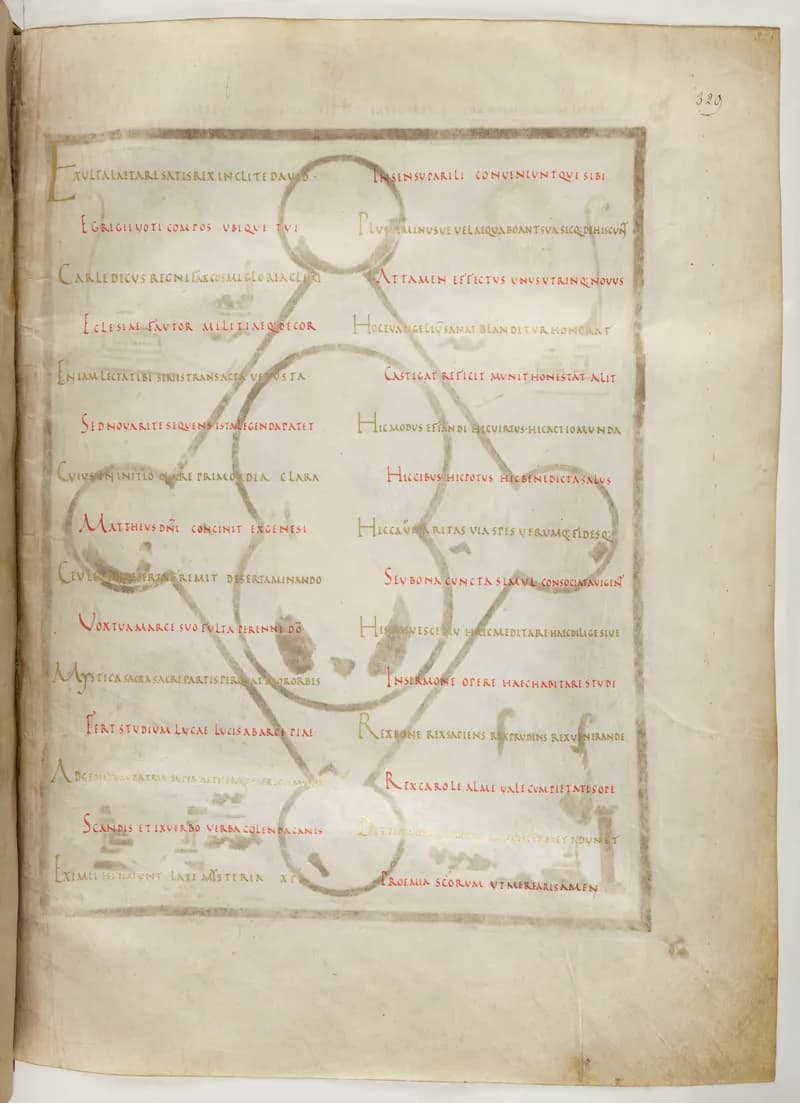 329
EXULTA LAETARE SATIS REX INCLITE DAVID
EGREGII VOTI COMPOS UBIQUE TUI
CARLE DECUS REGNI FAX COSMI GLORIA CLERI
ECLESIAE FAUTOR MILITIAEQ DECOR
EN IAM LECTA TIBI STRIIS TRANSACTA VETUSTA
SED NOVA RITE SEQUENS ISTA LEGENDA PATET
CUIUS IN INITIO PRIMORDIA CLARA
MATTHEUS DNI CONCINIT EX GENESI
FREMIT DESERTA MINANDO
VOX TUA MARCE SUO FULTA PERENNE DO
MYSTICA SACRA SACRI PARTIS ORBIS
FERT STUDIUM LUCAE LUCIS AB ARCE PIAE
PATRIS
SCANDIS ET IX VERBO VERBA COLENDA CANIS
EXIMII LATI MYSTERIA XPI
IN SENSU PARILI CONVENIUNT QUI SIBI
PLUS MINUSVE VEL AEQUA BOANT SUA SICQ DEHISCUNT
ATTAMEN EFFECTUS UNUS UTRINQ NOVUS
HOC EVANGELIUM SANAT BLANDITUR HONERAT
CASTIGAT REFICIT MUNIT HONESTAT ALIT
HIC MODUS EFFANDI HIC VIRTUS HIC ACTIO MUNDA
HIC CIBUS HIC POTUS HIC BENEDICTA SALUS
HIC CARITAS VIA SPES VERUMQ FIDESQ
SEU BONA CUNCTA SIMUL CONSOCIATA VIGENT
HIS VESCERE TU HAEC MEDITARE HAEC DILIGE SIVE
IN SERMONE OPERE HAEC HABITARE STUDE
REX BONE REX SAPIENS REX PRUDENS REX VENERANDE
REX CAROLE ALME VALE CUM PIETATIS OPE
PROEMIA SCORUM UT MEREARIS AMEN